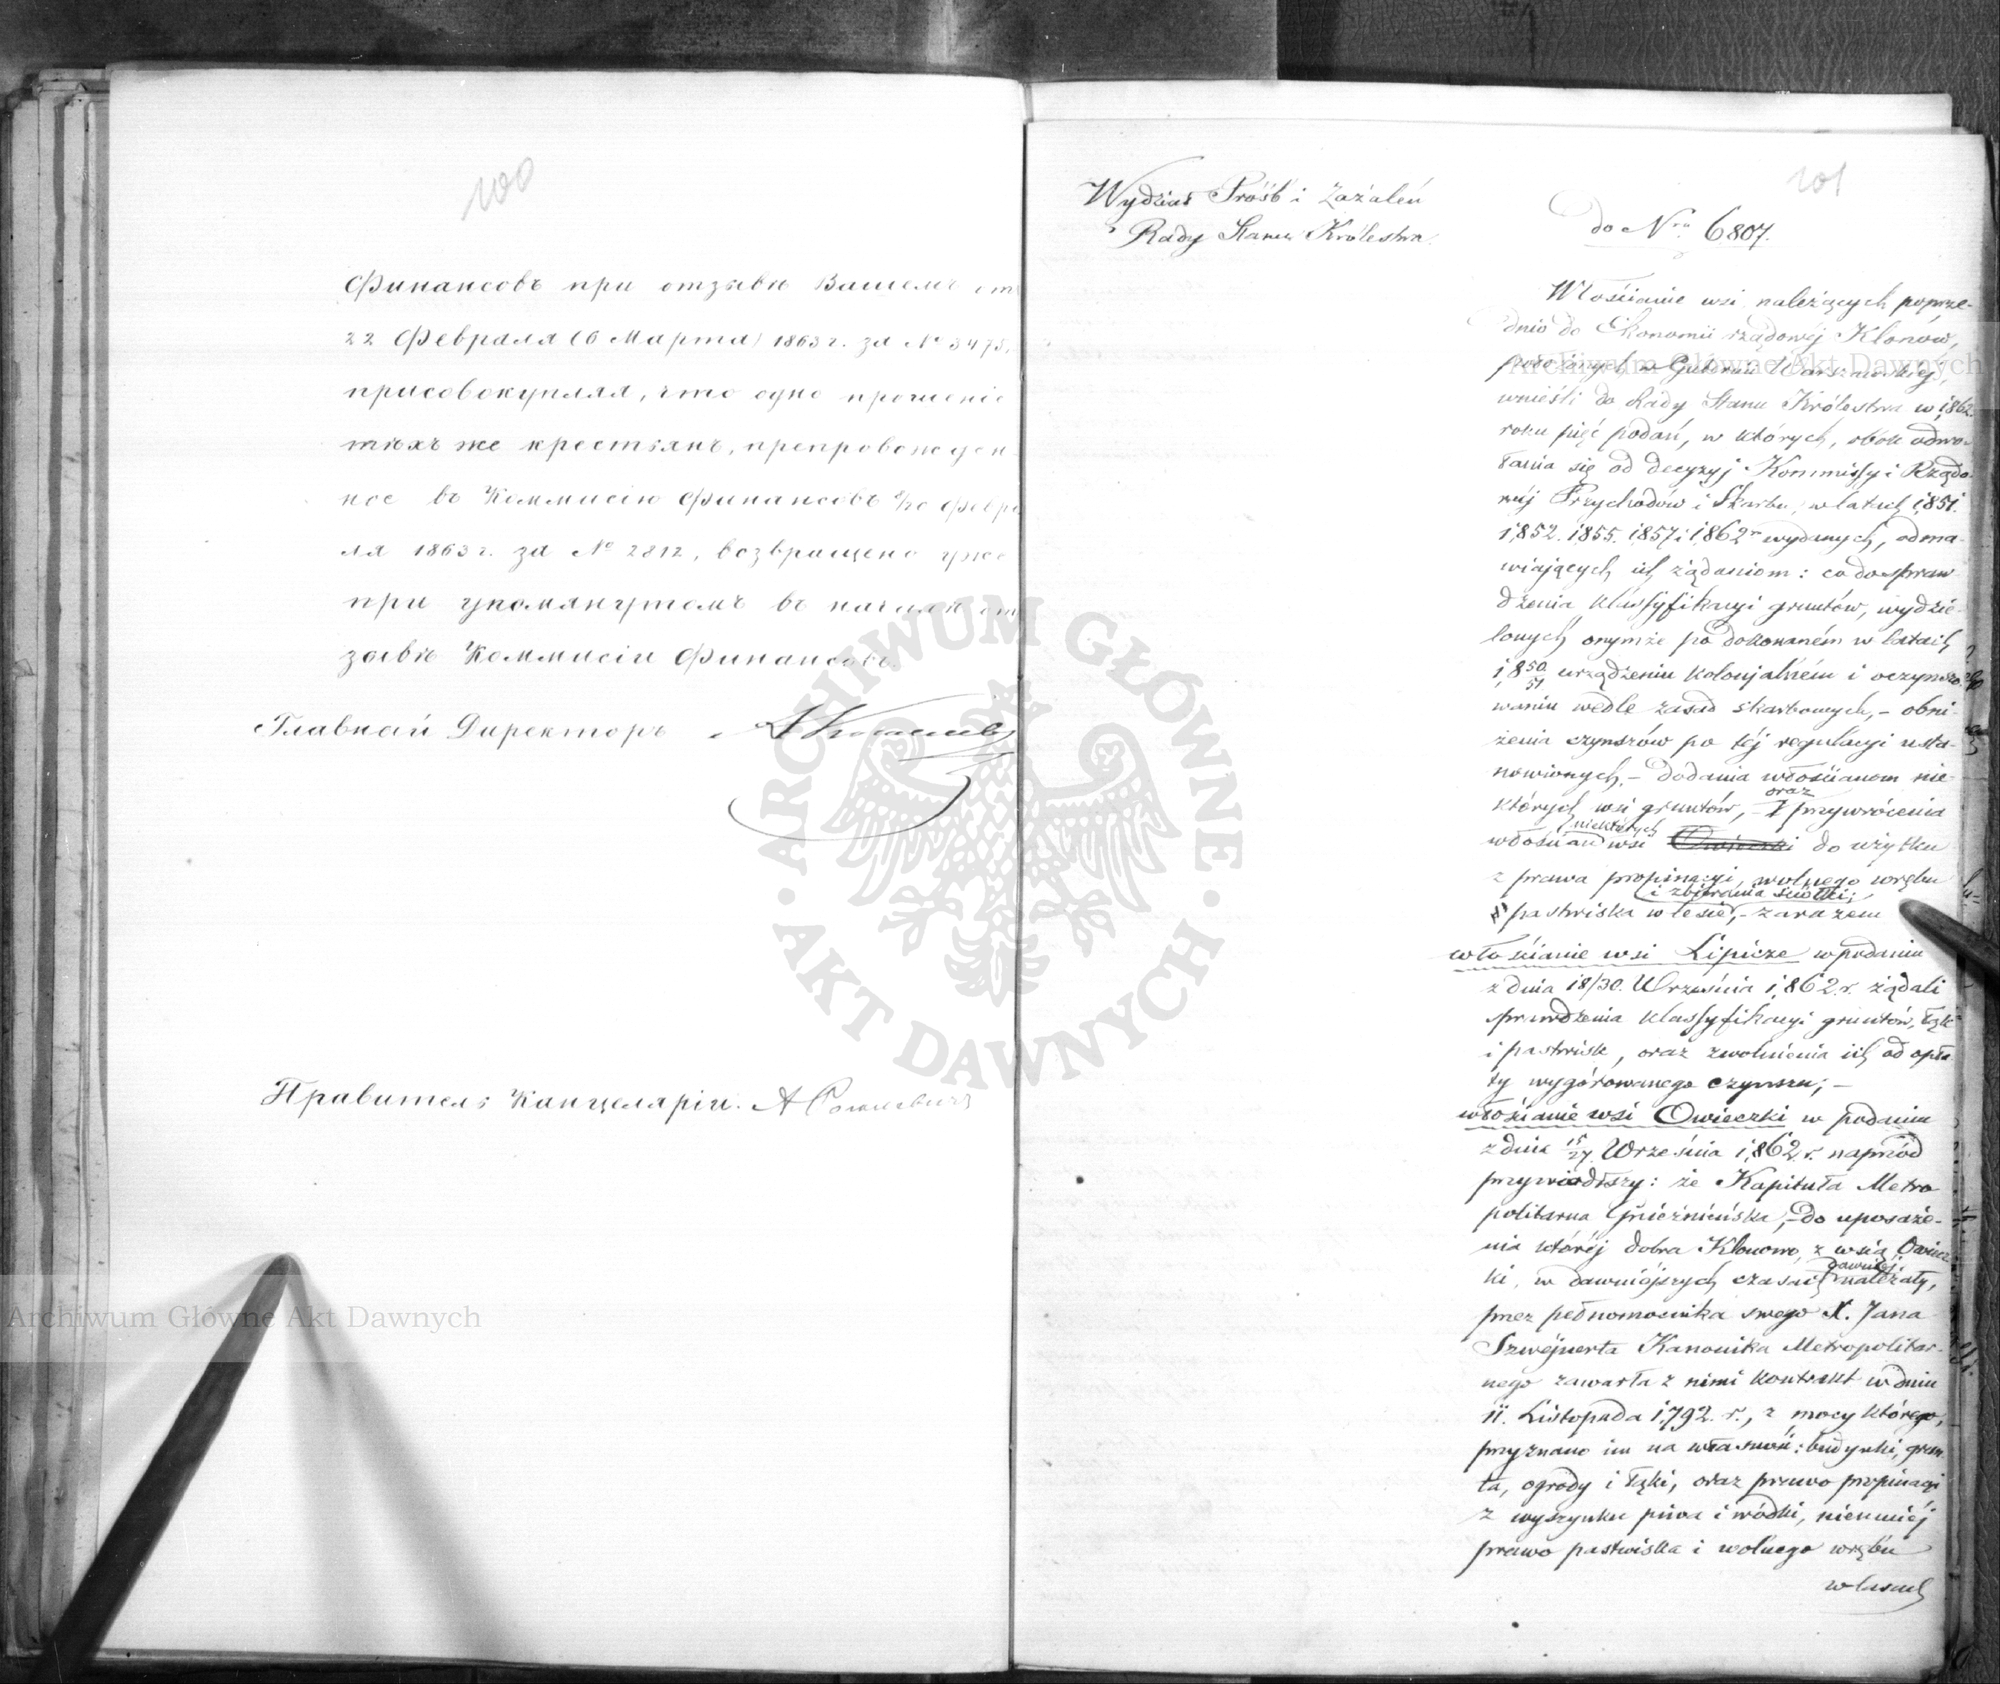 100
Финансовъ при отзывѣ Вашемъ от
22 Февраля (6 Марта) 1863 г. за № 3475,
присовокупляя, что одно прошеніе
тѣхъ же крестьянъ, препровожден-
ное въ Коммисію Финансовъ Февра
ля 1863 г. за № 2812, возвращено уже
при упомянутомъ въ началѣ от
зывѣ Коммисіи Финансовъ.
Главный Директоръ
Правитель Канцеляріи.
101
Wydział Próśb i Zażaleń
Rady Stanu Królestwa.
do Nru 6807.
Włościanie wsi należących poprze-
dnio do Ekonomii rządowéj Klonów,
położonych w Gubernii Warszawskiéj,
wnieśli do Rady Stanu Królestwa w 1862
roku pięć podań, w których, obok odwo-
łania się od decyzyj Kommissyi Rządo-
wéj Przychodów i Skarbu, w latach 1851.
1852. 1855. 1857 i 1862 r wydanych, odma-
wiających ich żądaniom: co do spraw
dzenia klassyfikacyi gruntów, wydzie-
lonych onymże po dokonaném w latach
1850/51 urządzeniu kolonjalném i oczynszo-
waniu wedle zasad skarbowych, – obni-
żenia czynszów po téj regulacyi usta-
nowionych, – dodania włościanom nie-
których wsi gruntów, – oraz przywrócenia
włościan niektórych wsi Owieczki do użytku
z prawa propinacyi, wolnego wrębu
i zbierania ściółki;
pastwiska w lesie, – zarazem
włościanie wsi Lipicze w podaniu
z dnia 18/30. Września 1862. r. żądali
sprawdzenia klassyfikacyi gruntów, łąk
i pastwisk, oraz zwolnienia ich od opła
ty wygórowanego czynszu; –
włościanie wsi Owieczki w podaniu
z dnia 15/27. Września 1862. r. naprzód
przywiódłszy: że Kapituła Metro
politarna Gnieźnieńska, – do uposaże-
nia któréj dobra Klonowo, z wsią Owiecz
ki, w dawniejszych czasach dawniéj należały,
przez pełnomocnika swego X. Jana
Szwejnerta Kanonika Metropolitar-
nego zawarła z nimi kontrakt w dniu
11. Listopada 1792. r., z mocy którego,
przyznano im na własność: budynki, grun
ta, ogrody i łąki, oraz prawo propinacyi
z wyszynku piwa i wódki, niemniéj
prawo pastwiska i wolnego wrębu
w lasach
Archiwum Główne Akt Dawnych
Archiwum Główne Akt Dawnych
ARCHIWUM GŁÓWNE · AKT DAWNYCH ·